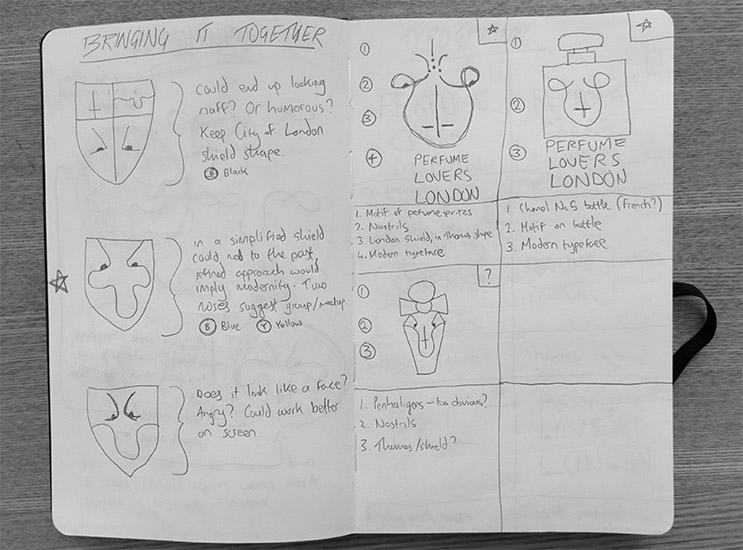 BRINGING IT TOGETHER
Could end up looking
naff? Or humorous?
Keep City of London
shield shape.
B Black
In a simplified shield
could nod to the past,
refined approach would
imply modernity. Two
noses suggest group/meetup
B Blue Y Yellow
Does it look like a face?
Angry? Could work better
on screen
1
2
3
4
PERFUME
LOVERS
LONDON
1. Motif of perfume spritzes
2. Nostrils
3. London shield, in Thames shape
4. Modern typeface
1
2
3
PERFUME
LOVERS
LONDON
1. Chanel No5 bottle (French?)
2. Motif on bottle
3. Modern typeface
?
1
2
3
1. Penhaligons - too obvious?
2. Nostrils
3. Thames/shield?